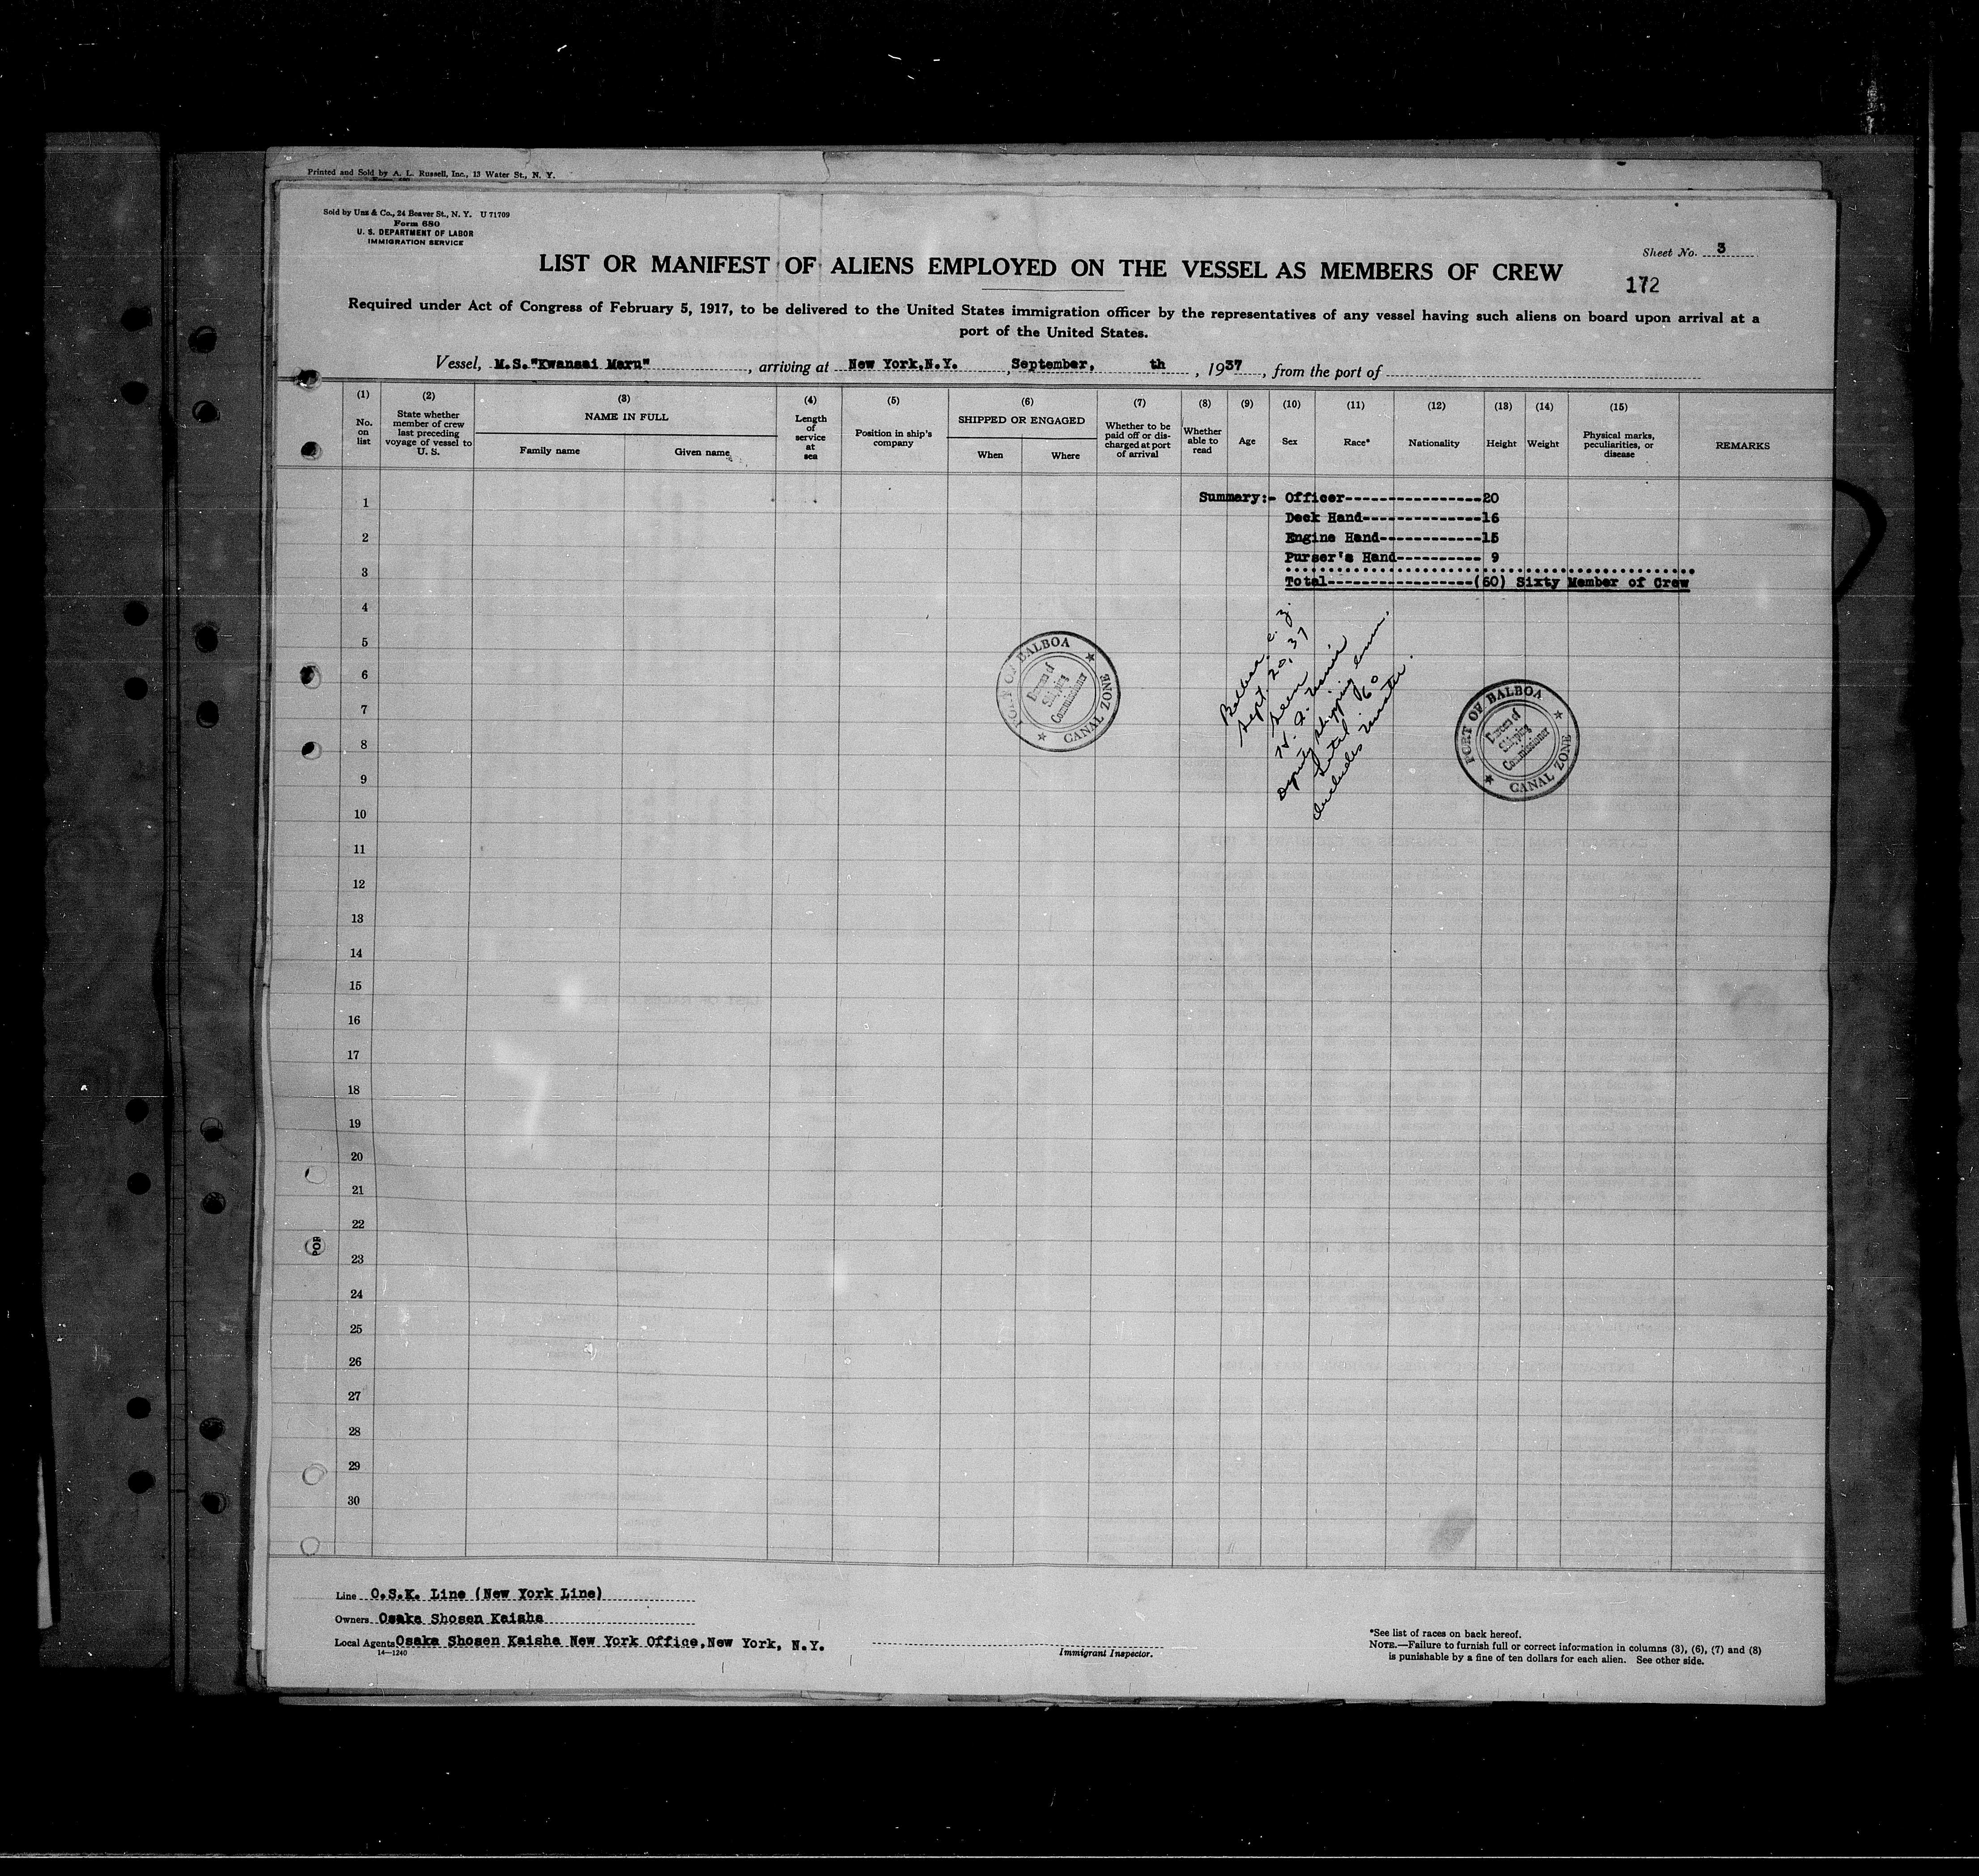 Printed and Sold by A. L. Russell, Inc., 13 Water St., N. Y.
Sold by Unz & Co., 24 Beaver St., N. Y. U 71709
Form 680
U. S. DEPARTMENT OF LABOR
IMMIGRATION SERVICE
Sheet No. 3
LIST OR MANIFEST OF ALIENS EMPLOYED ON THE VESSEL AS MEMBERS OF CREW
172
Required under Act of Congress of February 5, 1917, to be delivered to the United States immigration officer by the representatives of any vessel having such aliens on board upon arrival at a
port of the United States.
Vessel, M.S."Kwansai Maru", arriving at New York,N.Y. ,September, th , 1937, from the port of
(1) (2) (3) (4) (5) (6) (7) (8) (9) (10) (11) (12) (13) (14) (15)
No. on list
State whether member of crew last preceding voyage of vessel to U. S.
NAME IN FULL
Family name
Given name
Length of service at sea
Position in ship's company
SHIPPED OR ENGAGED
When
Where
Whether to be paid off or discharged at port of arrival
Whether able to read
Age
Sex
Race*
Nationality
Height
Weight
Physical marks, peculiarities, or disease
REMARKS
Summary:- Officer----------------20
Deck Hand--------------16
Engine Hand------------15
Purser's Hand---------- 9
Total-----------------(60) Sixty Member of Crew
1
2
3
4
5
6
7
8
9
10
11
12
13
14
15
16
17
18
19
20
21
22
23
24
25
26
27
28
29
30
PORT OF BALBOA
Bureau of
Shipping
Commissioner
CANAL ZONE
Balboa, C. Z.
Sept. 20, 37
Seen
Deputy Shipping Comm.
Total 60
Includes master.
PORT OF BALBOA
Bureau of
Shipping
Commissioner
CANAL ZONE
POR
Line O.S.K. Line (New York Line)
Owners Osaka Shosen Kaisha
Local Agents Osaka Shosen Kaisha New York Office,New York, N.Y.
14—1240
Immigrant Inspector.
*See list of races on back hereof.
NOTE.—Failure to furnish full or correct information in columns (3), (6), (7) and (8)
is punishable by a fine of ten dollars for each alien. See other side.